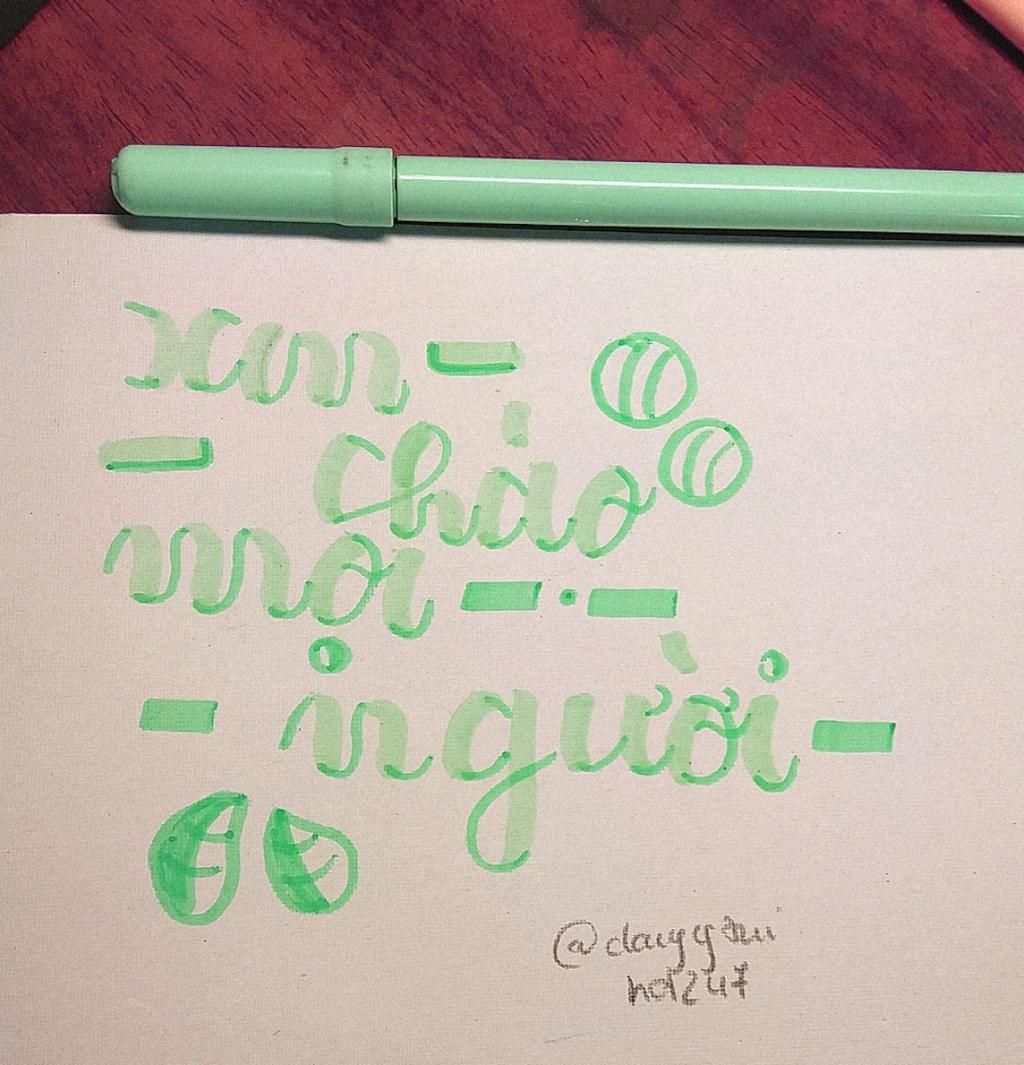 xin
chào
mọi
người
hoi247